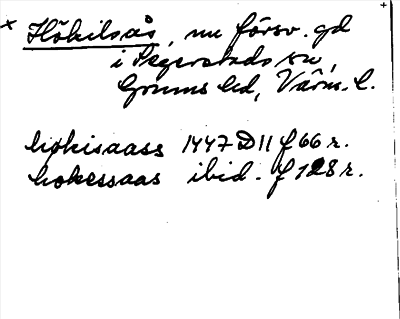 × Hökilsås, nu försv. gd
i Segerstads sn,
Grums hd, Värml. l.
hökisaass 1447 D 11 f 66 r.
hokessaas ibid. f 128 r.